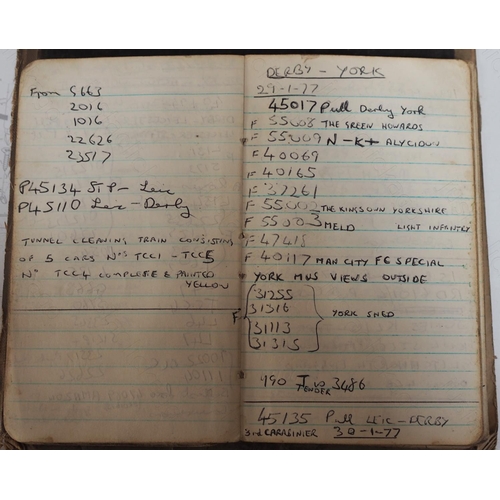 From 5663
2016
1016
22626
23517
P45134 St P - Leic
P45110 Leic - Derby
TUNNEL CLEANING TRAIN CONSISTING
OF 5 CARS Nos TCC1 - TCC5
No TCC4 COMPLETE & PAINTED
YELLOW
DERBY - YORK
29-1-77
45017 Pull Derby York
F 55008 THE GREEN HOWARDS
F 55009 N-K+ ALYCIDON
F 40069
F 40165
F 37261
F 55002 THE KINGS OWN YORKSHIRE
LIGHT INFANTRY
F 55003 MELD
F 47418
F 40117 MAN CITY FC SPECIAL
YORK MUS VIEWS OUTSIDE
31255
31316
F 31113 YORK SHED
31315
190 TENDER 3486
45135 Pull LEIC-DERBY
3rd CARABINIER 30-1-77